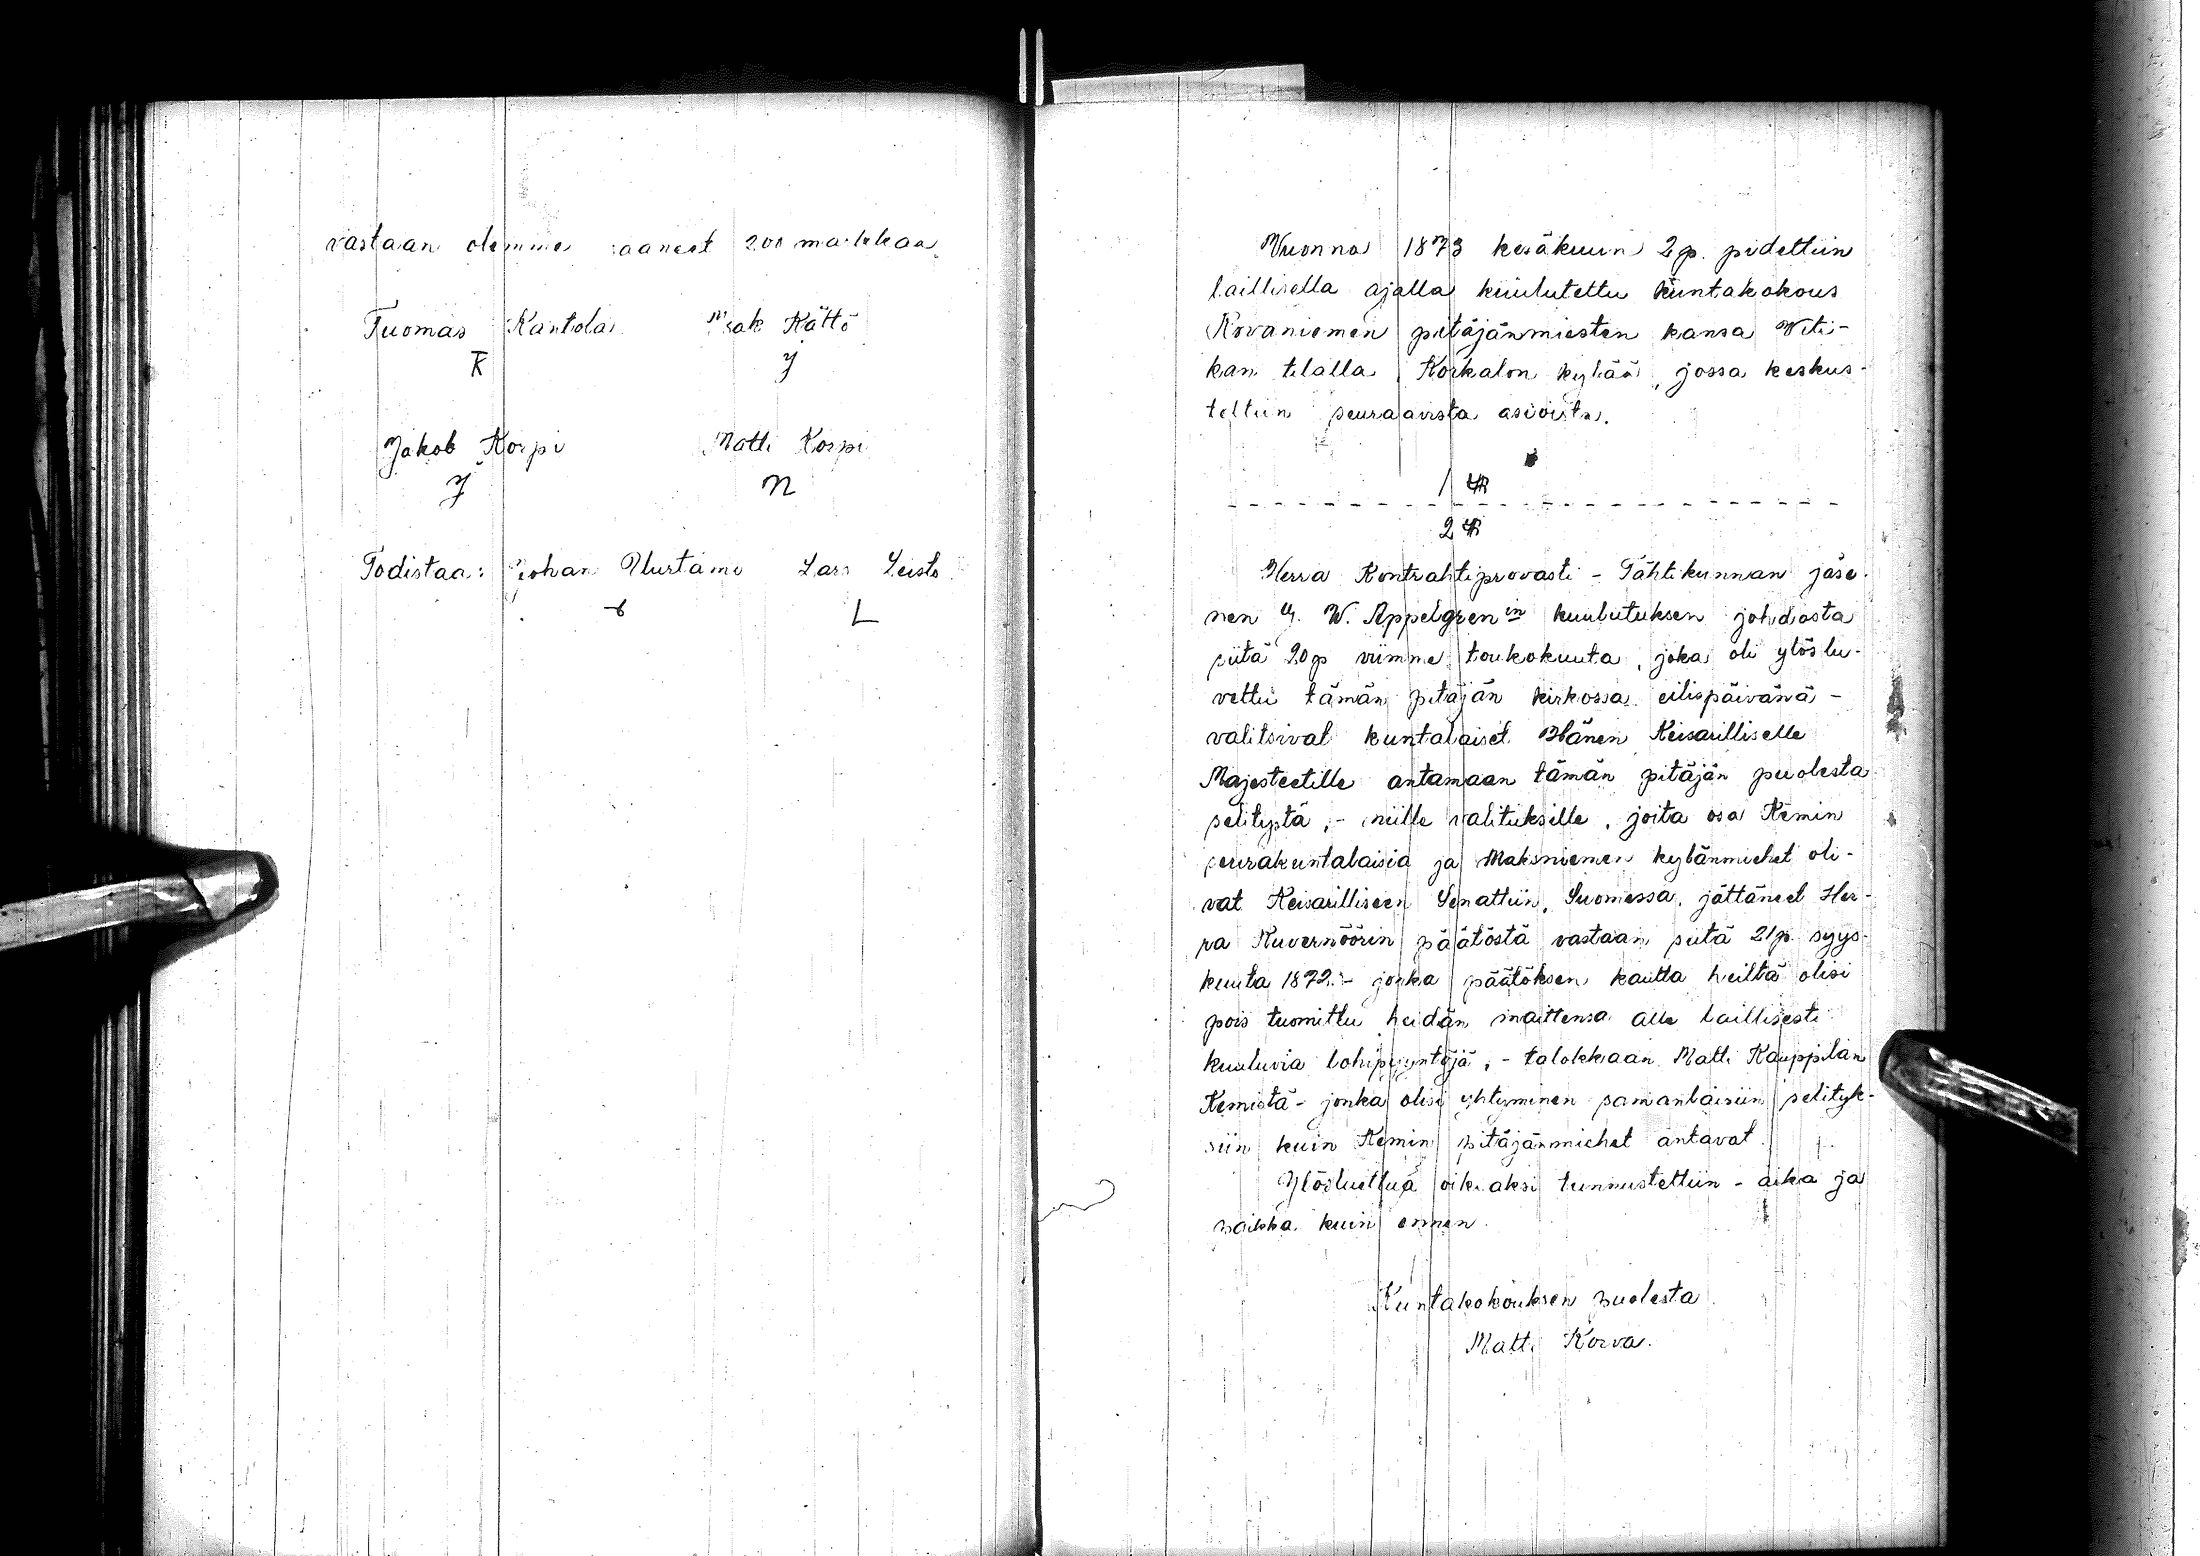 vastaan olemme saaneet 200 markkaa
Tuomas Kantola Isak Kättö
K J
Jakob Korpi Matti Korpi
J N
Todistaa: Johan Lars Leisto
L
Wuonna 1873 kesäkuun 2 p. pidettiin
laillisella ajalla kuulutettu kuntakokous
Rovaniemen pitäjänmiesten kansa Viti-
kan tilalla Korkalon kylää, jossa keskus-
teltiin seuraavista asioista.
1 §
2 §
Herra Kontrahtiprovasti - Tähtikunnan jäse-
nen G. W. Appelgren'in kuulutuksen johdosta
siitä 20 p viimme toukokuuta, joka oli ylöslu-
vettu tämän pitäjän kirkossa eilispäivänä -
valitsivat kuntalaiset Hänen Keisarilliselle
Majesteetille antamaan tämän pitäjän puolesta
selitystä, - niille valituksille, joita osa Kemin
seurakuntalaisia ja Maksniemen kylänmiehet oli-
vat Keisarilliseen Senattiin, Suomessa, jättäneet Her-
ra Kuvernöörin päätöstä vastaan siitä 21 p. syys-
kuuta 1872. - jonka päätöksen kautta heiltä olisi
pois tuomittu heidän maittensa alle laillisesti
kuuluvia lohipyyntöjä, - talokkaan Matti Kauppilan
Kemistä - jonka olisi yhtyminen samanlaisiin selityk-
siin kuin Kemin pitäjänmiehet antavat.
Ylösluettua oikiaksi tunnustettiin - aika ja
paikka kuin ennen.
Kuntakokouksen puolesta
Matti Korva.